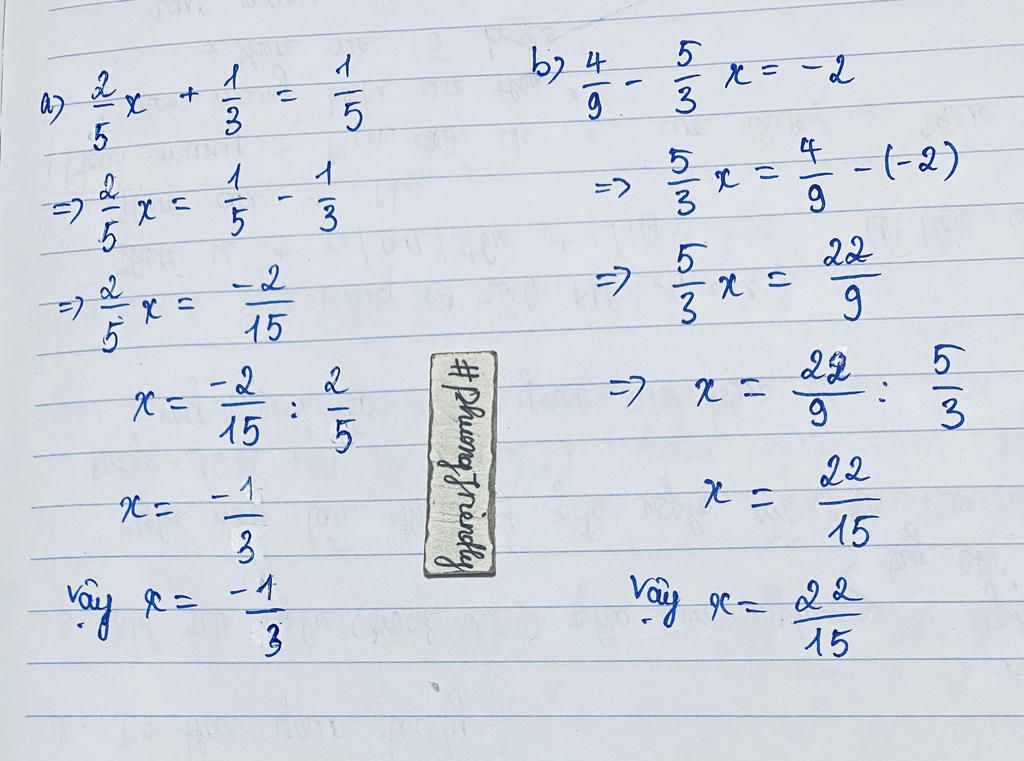 a) 2/5 x + 1/3 = 1/5
=> 2/5 x = 1/5 - 1/3
=> 2/5 x = -2/15
x = -2/15 : 2/5
x = -1/3
Vậy x = -1/3
b) 4/9 - 5/3 x = -2
=> 5/3 x = 4/9 - (-2)
=> 5/3 x = 22/9
=> x = 22/9 : 5/3
x = 22/15
Vậy x = 22/15
#PhuongFriendly